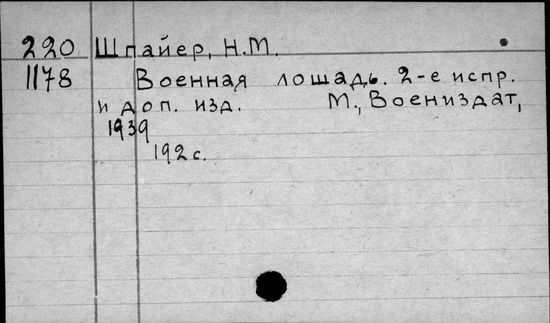 220 Шпайер, Н.М.
1178 Военная лошадь. 2-е испр.
и доп. изд. М., Воениздат,
1939
192 с.